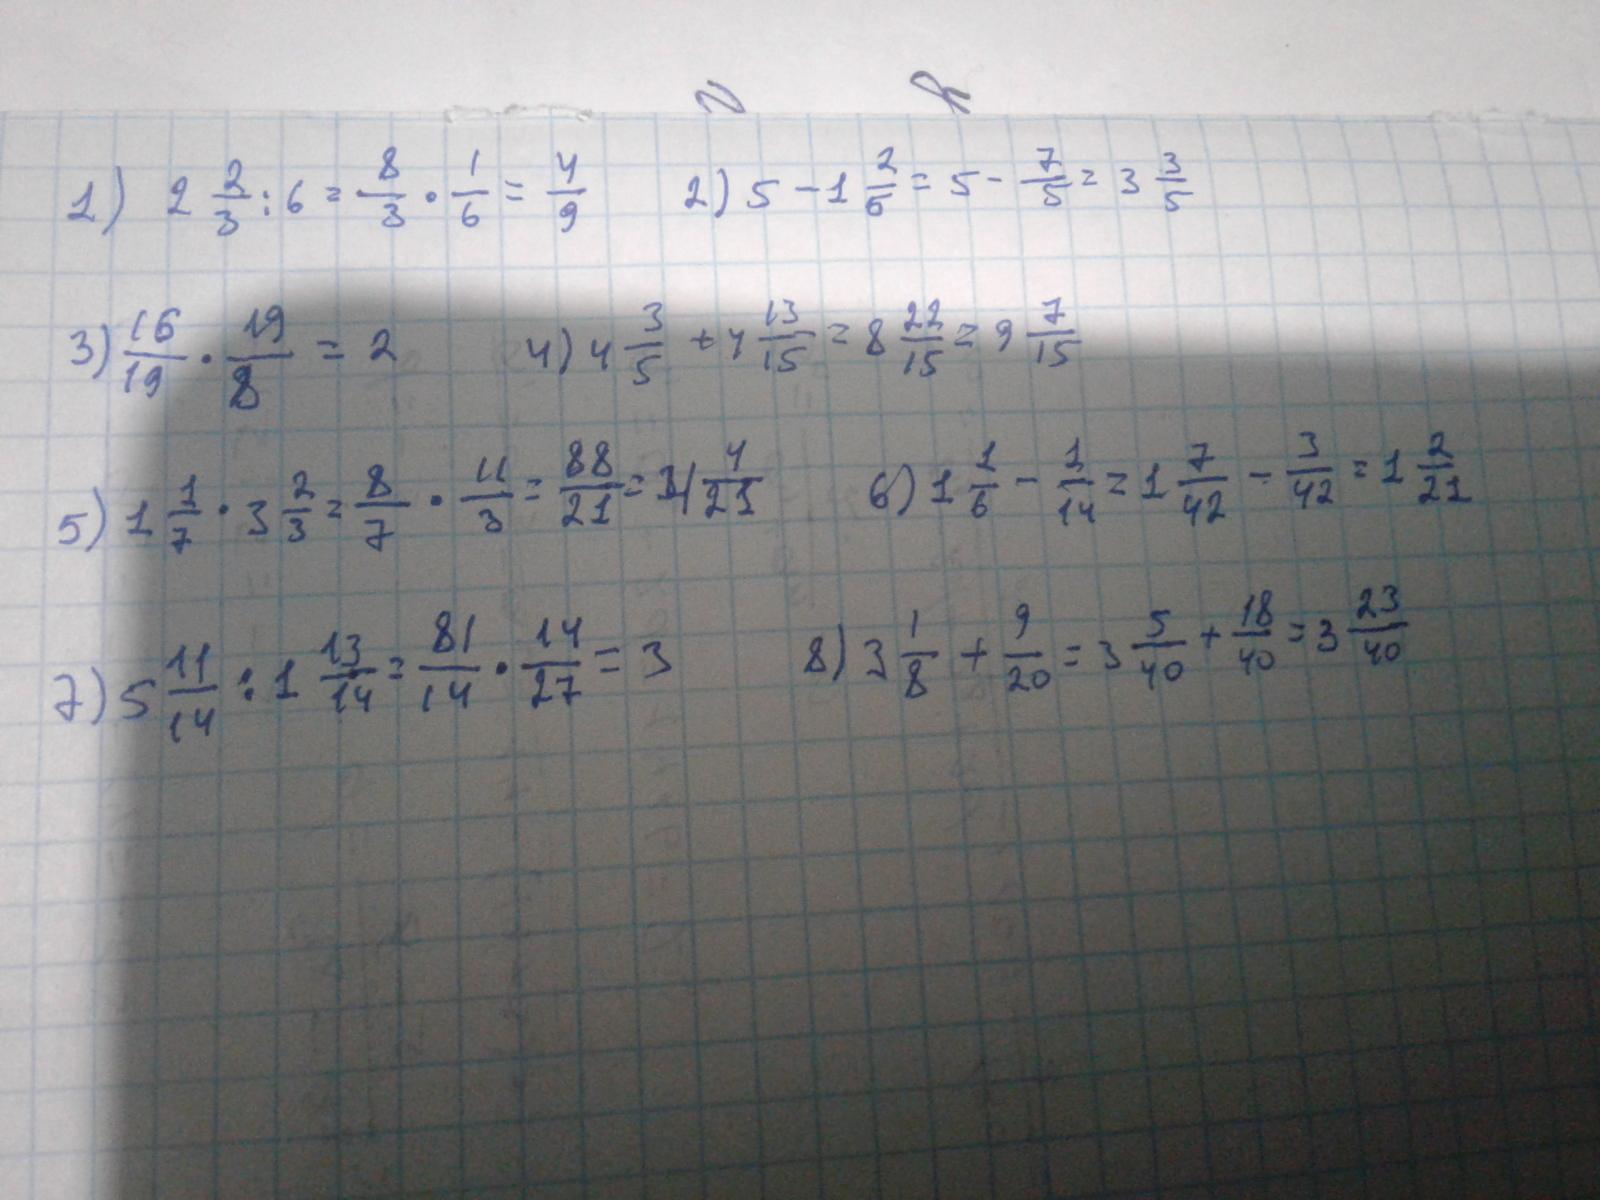 1) 2 2/3 : 6 = 8/3 · 1/6 = 4/9 2) 5 - 1 2/5 = 5 - 7/5 = 3 3/5
3) 16/19 · 19/8 = 2 4) 4 3/5 + 4 13/15 = 8 22/15 = 9 7/15
5) 1 1/7 · 3 2/3 = 8/7 · 11/3 = 88/21 = 4 4/21 6) 1 1/6 - 1/14 = 1 7/42 - 3/42 = 1 2/21
7) 5 11/14 : 1 13/14 = 81/14 · 14/27 = 3 8) 3 1/8 + 9/20 = 3 5/40 + 18/40 = 3 23/40